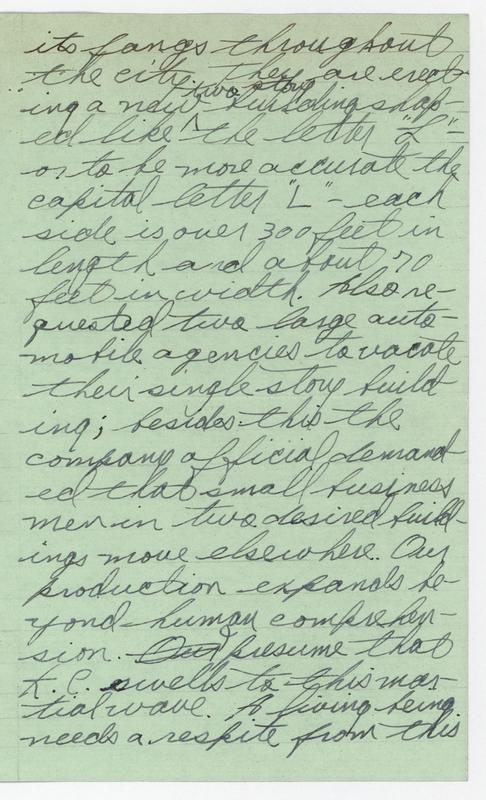 its fangs throughout
the city. They are erect-
ing a new ^two story building shap-
ed like the letter "L" -
or to be more accurate the
capital letter "L" - each
side is over 300 feet in
length and about 70
feet in width. Also re-
quested two large auto-
mobile agencies to vacate
their single story build-
ing; besides this the
company official demand-
ed that small business
men in two desired build-
ings move elsewhere. Our
production expands be-
yond human comprehen-
sion. Our presume that
K.C. swells to this mar-
tial wave. A living being
needs a respite from this